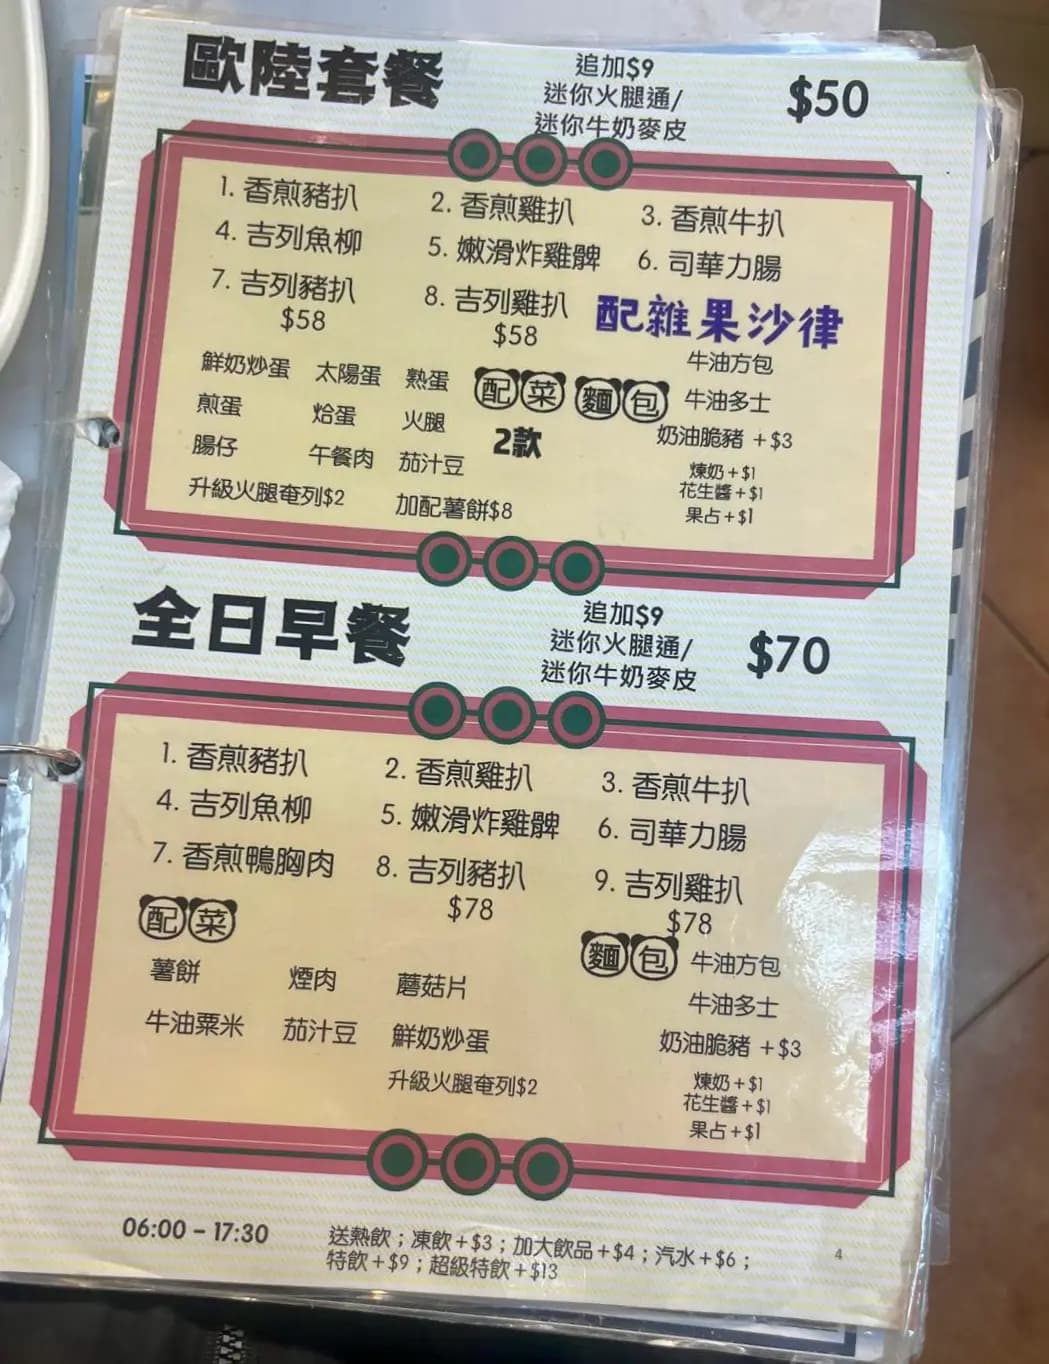 歐陸套餐
追加$9
迷你火腿通/
迷你牛奶麥皮
$50
1. 香煎豬扒 2. 香煎雞扒 3. 香煎牛扒
4. 吉列魚柳 5. 嫩滑炸雞髀 6. 司華力腸
7. 吉列豬扒 8. 吉列雞扒
$58 $58
配雜果沙律
鮮奶炒蛋 太陽蛋 熟蛋
煎蛋 烚蛋 火腿
腸仔 午餐肉 茄汁豆
升級火腿奄列$2 加配薯餅$8
配菜
2款
麵包
牛油方包
牛油多士
奶油脆豬 +$3
煉奶+$1
花生醬+$1
果占+$1
全日早餐
追加$9
迷你火腿通/
迷你牛奶麥皮
$70
1. 香煎豬扒 2. 香煎雞扒 3. 香煎牛扒
4. 吉列魚柳 5. 嫩滑炸雞髀 6. 司華力腸
7. 香煎鴨胸肉 8. 吉列豬扒 9. 吉列雞扒
$78 $78
配菜
薯餅 煙肉 蘑菇片
牛油粟米 茄汁豆 鮮奶炒蛋
升級火腿奄列$2
麵包
牛油方包
牛油多士
奶油脆豬 +$3
煉奶+$1
花生醬+$1
果占+$1
06:00 – 17:30
送熱飲；凍飲+$3；加大飲品+$4；汽水+$6；
特飲+$9；超級特飲+$13
4